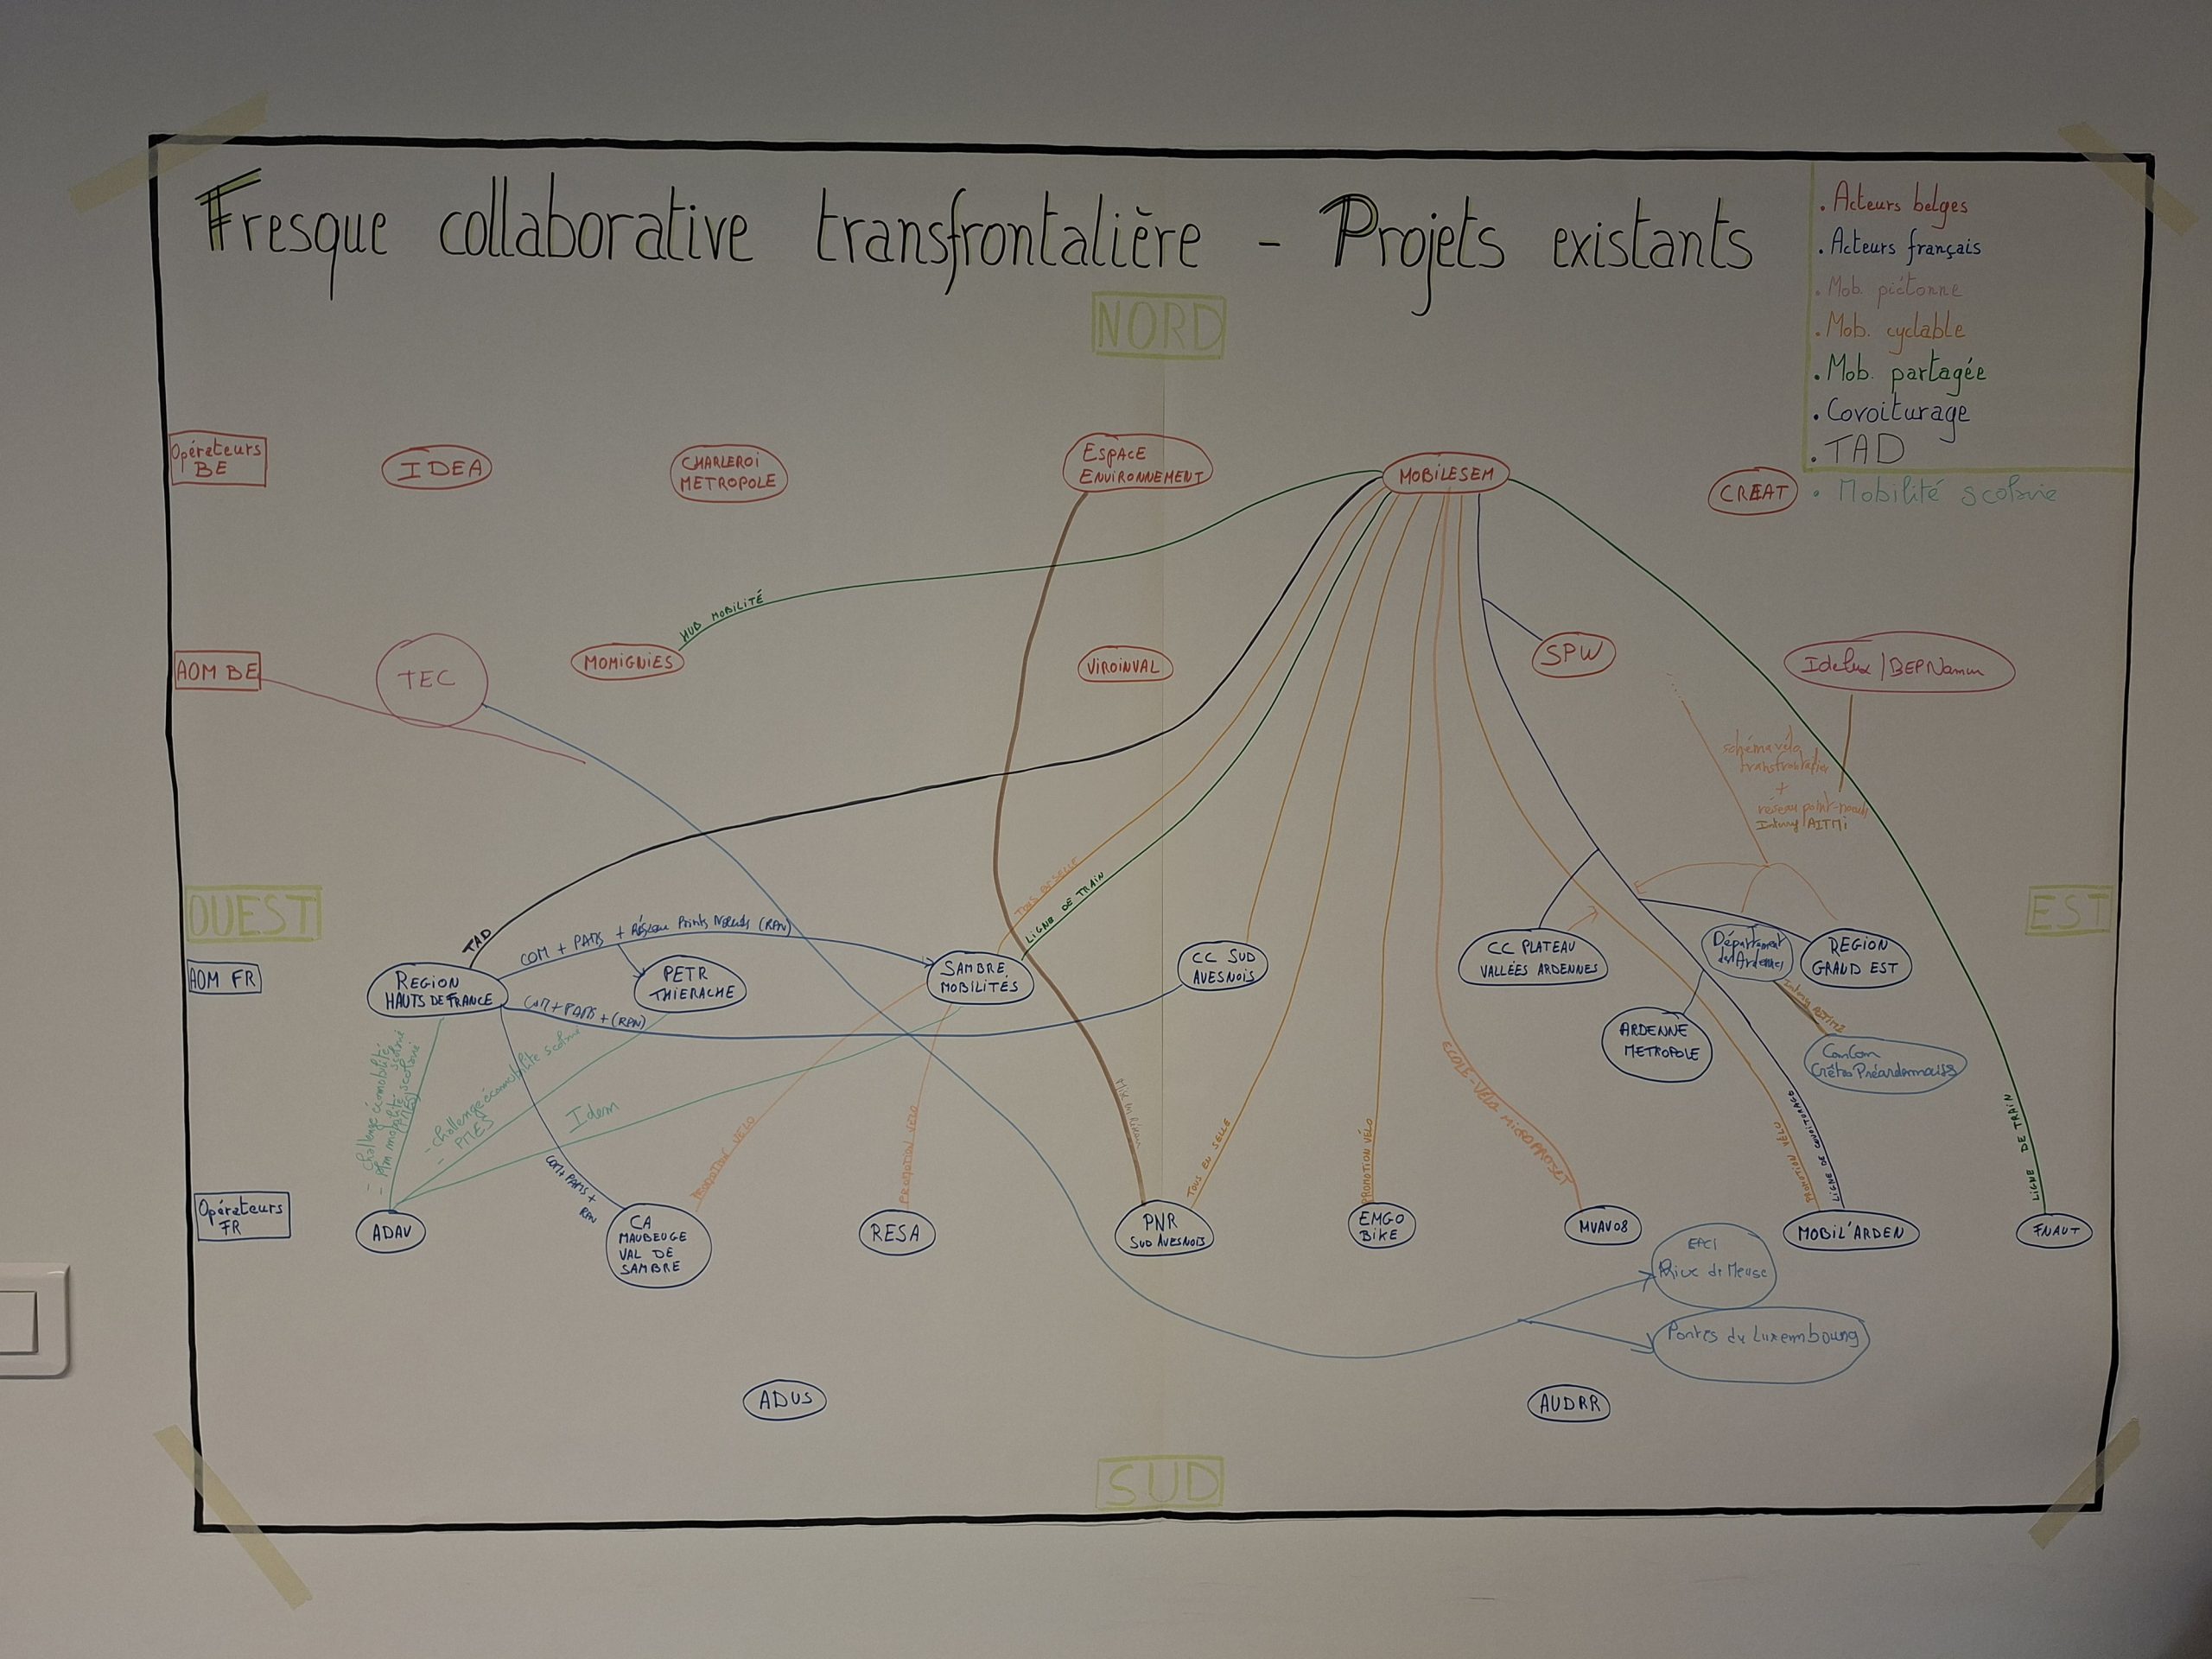 Fresque collaborative transfrontalière - Projets existants
. Acteurs belges
. Acteurs français
. Mob. piétonne
. Mob. cyclable
. Mob. partagée
. Covoiturage
. TAD
. Mobilité scolaire
NORD
Opérateurs
BE
IDEA
CHARLEROI
METROPOLE
ESPACE
ENVIRONNEMENT
MOBILESEM
CREAT
HUB MOBILITÉ
AOM BE
TEC
MOMIGNIES
VIROINVAL
SPW
Idelux / BEP Namur
schéma vélo
transfrontalier
+
réseau point-noeuds
Interreg AITMi
OUEST
EST
TAD
COM + PAMS + Réseau Points Noeuds (RPN)
TOUS EN SELLE
LIGNE DE TRAIN
AOM FR
REGION
HAUTS DE FRANCE
PETR
THIERACHE
SAMBRE
MOBILITÉS
CC SUD
AVESNOIS
CC PLATEAU
VALLÉES ARDENNES
Département
des Ardennes
REGION
GRAND EST
COM + PAMS + (RPN)
ARDENNE
METROPOLE
Interreg AITMi
ComCom
Crêtes Préardennaises
- challenge écomobilité
scolaire
- challenge écomobilité scolaire
- PMES
Idem
COM + PAMS +
RPN
PROMOTION VÉLO
PROMOTION VÉLO
TOUS EN SELLE
PROMOTION VÉLO
ECOLE-VÉLO MICROPROJET
PROMOTION VÉLO
LIGNE DE COVOITURAGE
LIGNE DE TRAIN
Opérateurs
FR
ADAV
CA
MAUBEUGE
VAL DE
SAMBRE
RESA
PNR
SUD AVESNOIS
EMGO
BIKE
MVAV08
MOBIL'ARDEN
FNAUT
EPCI
de Meuse
Portes du Luxembourg
ADUS
AUDRR
SUD